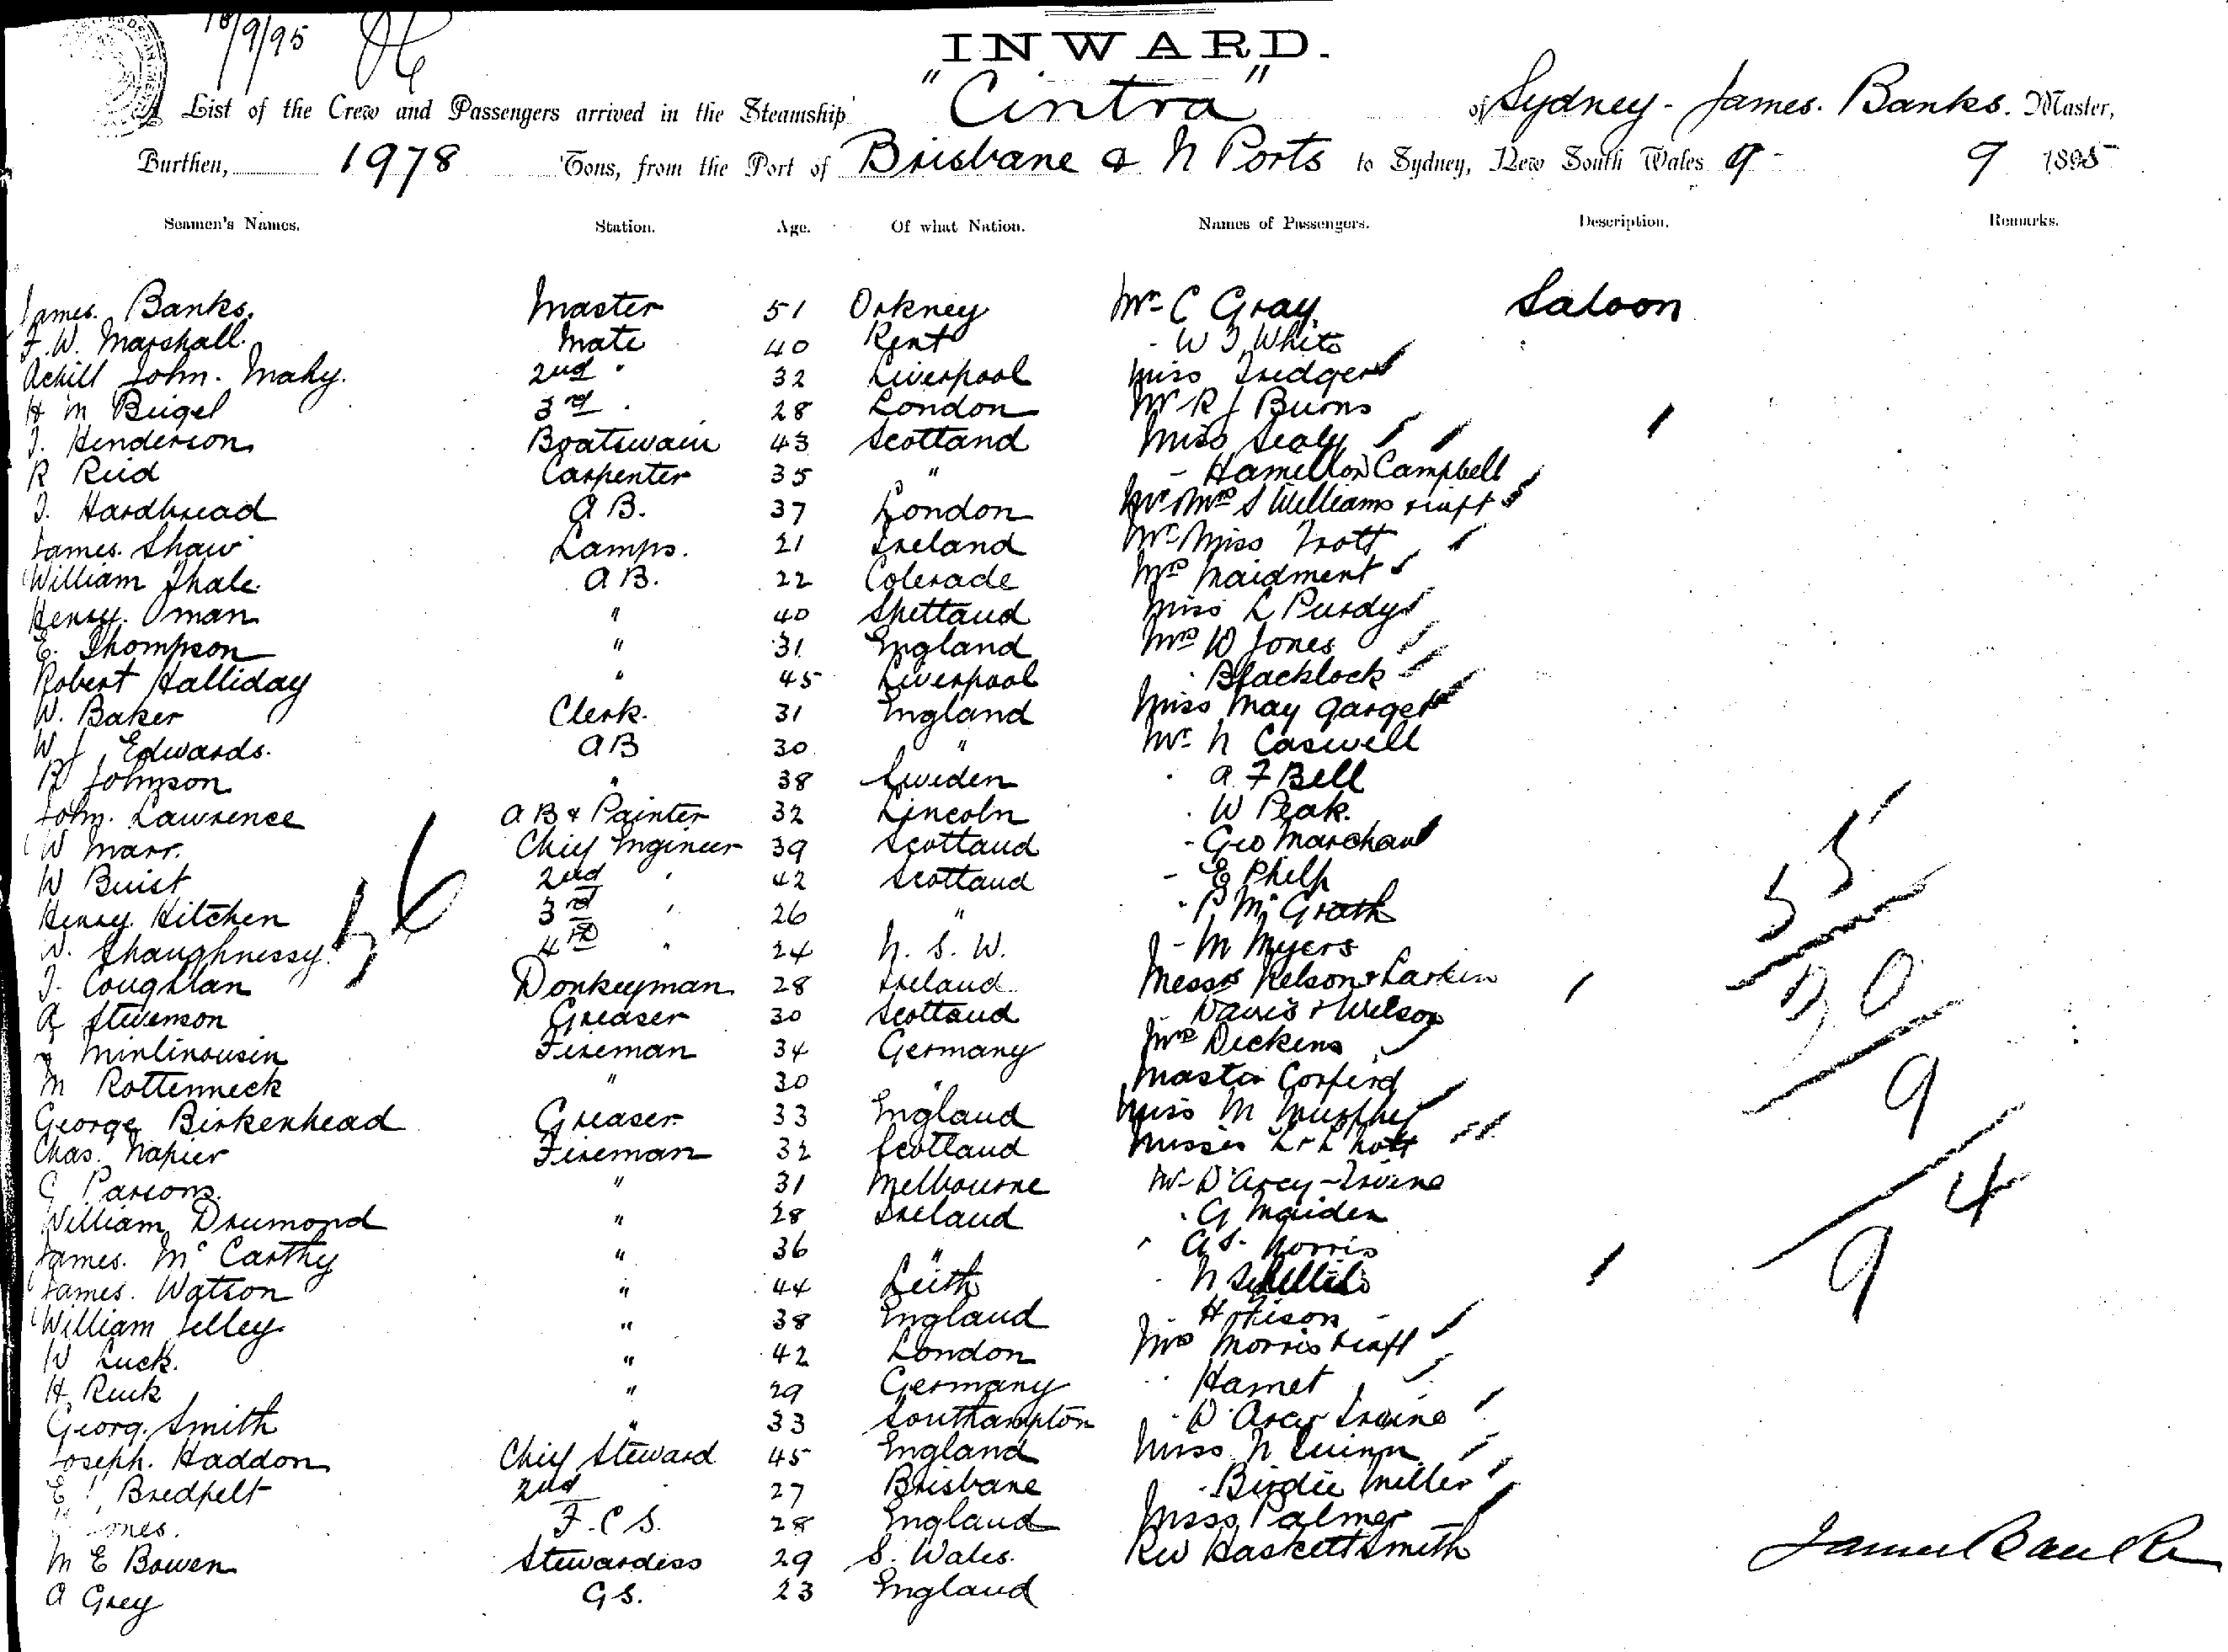 18/9/95
INWARD.
A List of the Crew and Passengers arrived in the Steamship "Cintra" of Sydney - James. Banks. Master,
Burthen, 1978 Tons, from the Port of Brisbane & N Ports to Sydney, New South Wales 9 - 9 1895
Seamen's Names. Station. Age. Of what Nation. Names of Passengers. Description. Remarks.
James. Banks. Master 51 Orkney Mr C Gray Saloon
F. W. Marshall. Mate 40 Kent - W J White
Achill John. Mahy. 2nd " 32 Liverpool Miss Tredger
H M Beigel 3rd . 28 London Mr R J Burns
J. Henderson Boatswain 43 Scotland Miss Sealy
R Reid Carpenter 35 " - Hamilton Campbell
J. Hardhead A B. 37 London Mr Mrs S Williams & inft
James. Shaw Lamps. 21 Ireland Mr Miss Trott
William Thale. A B. 22 Colerade Mrs Maidment
Henry. Oman " 40 Shetland Miss L Purdy
E. Thompson " 31 England Mrs W Jones
Robert Halliday " 45 Liverpool Blacklock
W. Baker Clerk. 31 England Miss May Garget
W J Edwards. A B 30 " Mr N Caswell
R Johnson " 38 Sweden . A. F Bell
John. Lawrence A B & Painter 32 Lincoln . W Peak.
W Marr. Chief Engineer 39 Scotland - Geo Marchant
W Buist 2nd " 42 Scotland - E Philp
Henry Kitchen 3rd " 26 " . P McGrath
Shaughnessy. 4th " 24 N. S. W. - M Myers
J. Coughlan Donkeyman 28 Ireland Messrs Kelson & Larkin
A Stevenson Greaser 30 Scotland Davis & Wilson
Minlinousin Fireman 34 Germany Mrs Dickens
M Rottenneck " 30 " Master Corferd
George Birkenhead Greaser 33 England Miss M Murphy
Chas. Napier Fireman 32 Scotland Misses L & L
G Parsons. " 31 Melbourne Mr D'Arcy-Irvine
William Drumond " 28 Ireland . G Maiden
James. McCarthy " 36 " A S. Norris
James. Watson " 44 Leith N
William Jelley. " 38 England
W Luck. " 42 London Mrs Morris & inft
H. Ruck " 29 Germany Hamet
Georg. Smith " 33 Southampton - D'Arcy Irvine
Joseph. Haddon Chief Steward 45 England Miss N Quinn
E Bredfelt 2nd 27 Brisbane - Birdie Miller
F. C S. 28 England Miss Palmer
M E Bowen Stewardess 29 S. Wales. Rev Haskett Smith
A Grey G S. 23 England
36
55
30
9
94
James Banks